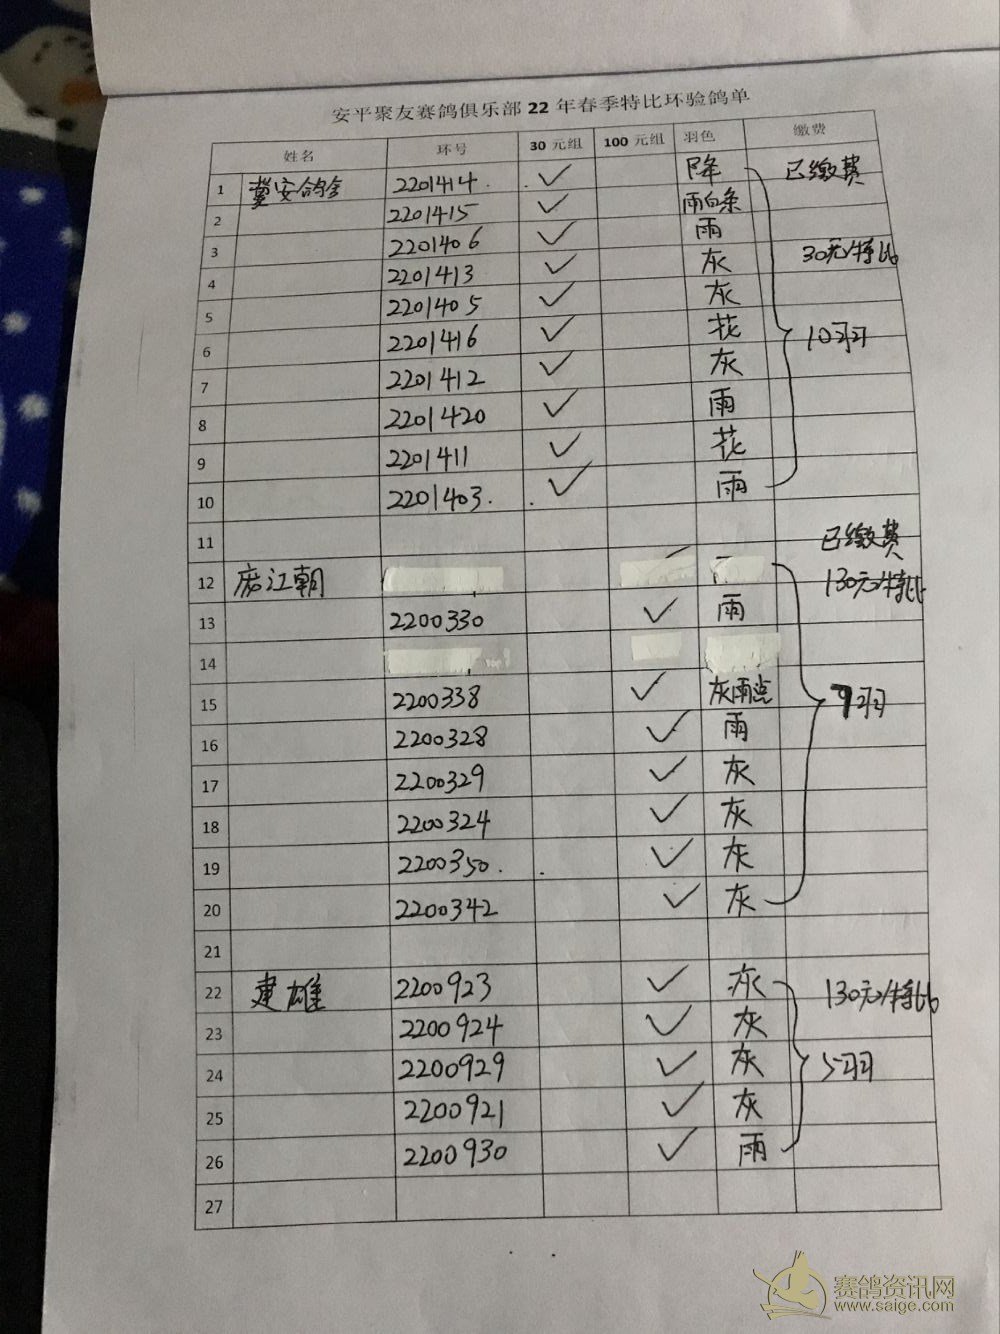 安平聚友赛鸽俱乐部 22 年春季特比环验鸽单
姓名 环号 30 元组 100 元组 羽色 缴费
1 安鸽会 2201414. ✓ 降 已缴费
2 2201415 ✓ 雨白条
3 2201406 ✓ 雨 30元/特比
4 2201413 ✓ 灰
5 2201405 ✓ 灰
6 2201416 ✓ 花 10羽
7 2201412 ✓ 灰
8 2201420 ✓ 雨
9 2201411 ✓ 花
10 2201403. ✓ 雨
11 已缴费
12 江朝 130元/特比
13 2200330 ✓ 雨
14
15 2200338 ✓ 灰雨点 9羽
16 2200328 ✓ 雨
17 2200329 ✓ 灰
18 2200324 ✓ 灰
19 2200350. ✓ 灰
20 2200342 ✓ 灰
21
22 建雄 2200923 ✓ 灰 130元/特比
23 2200924 ✓ 灰
24 2200929 ✓ 灰 5羽
25 2200921 ✓ 灰
26 2200930 ✓ 雨
27
赛鸽资讯网
www.saige.com